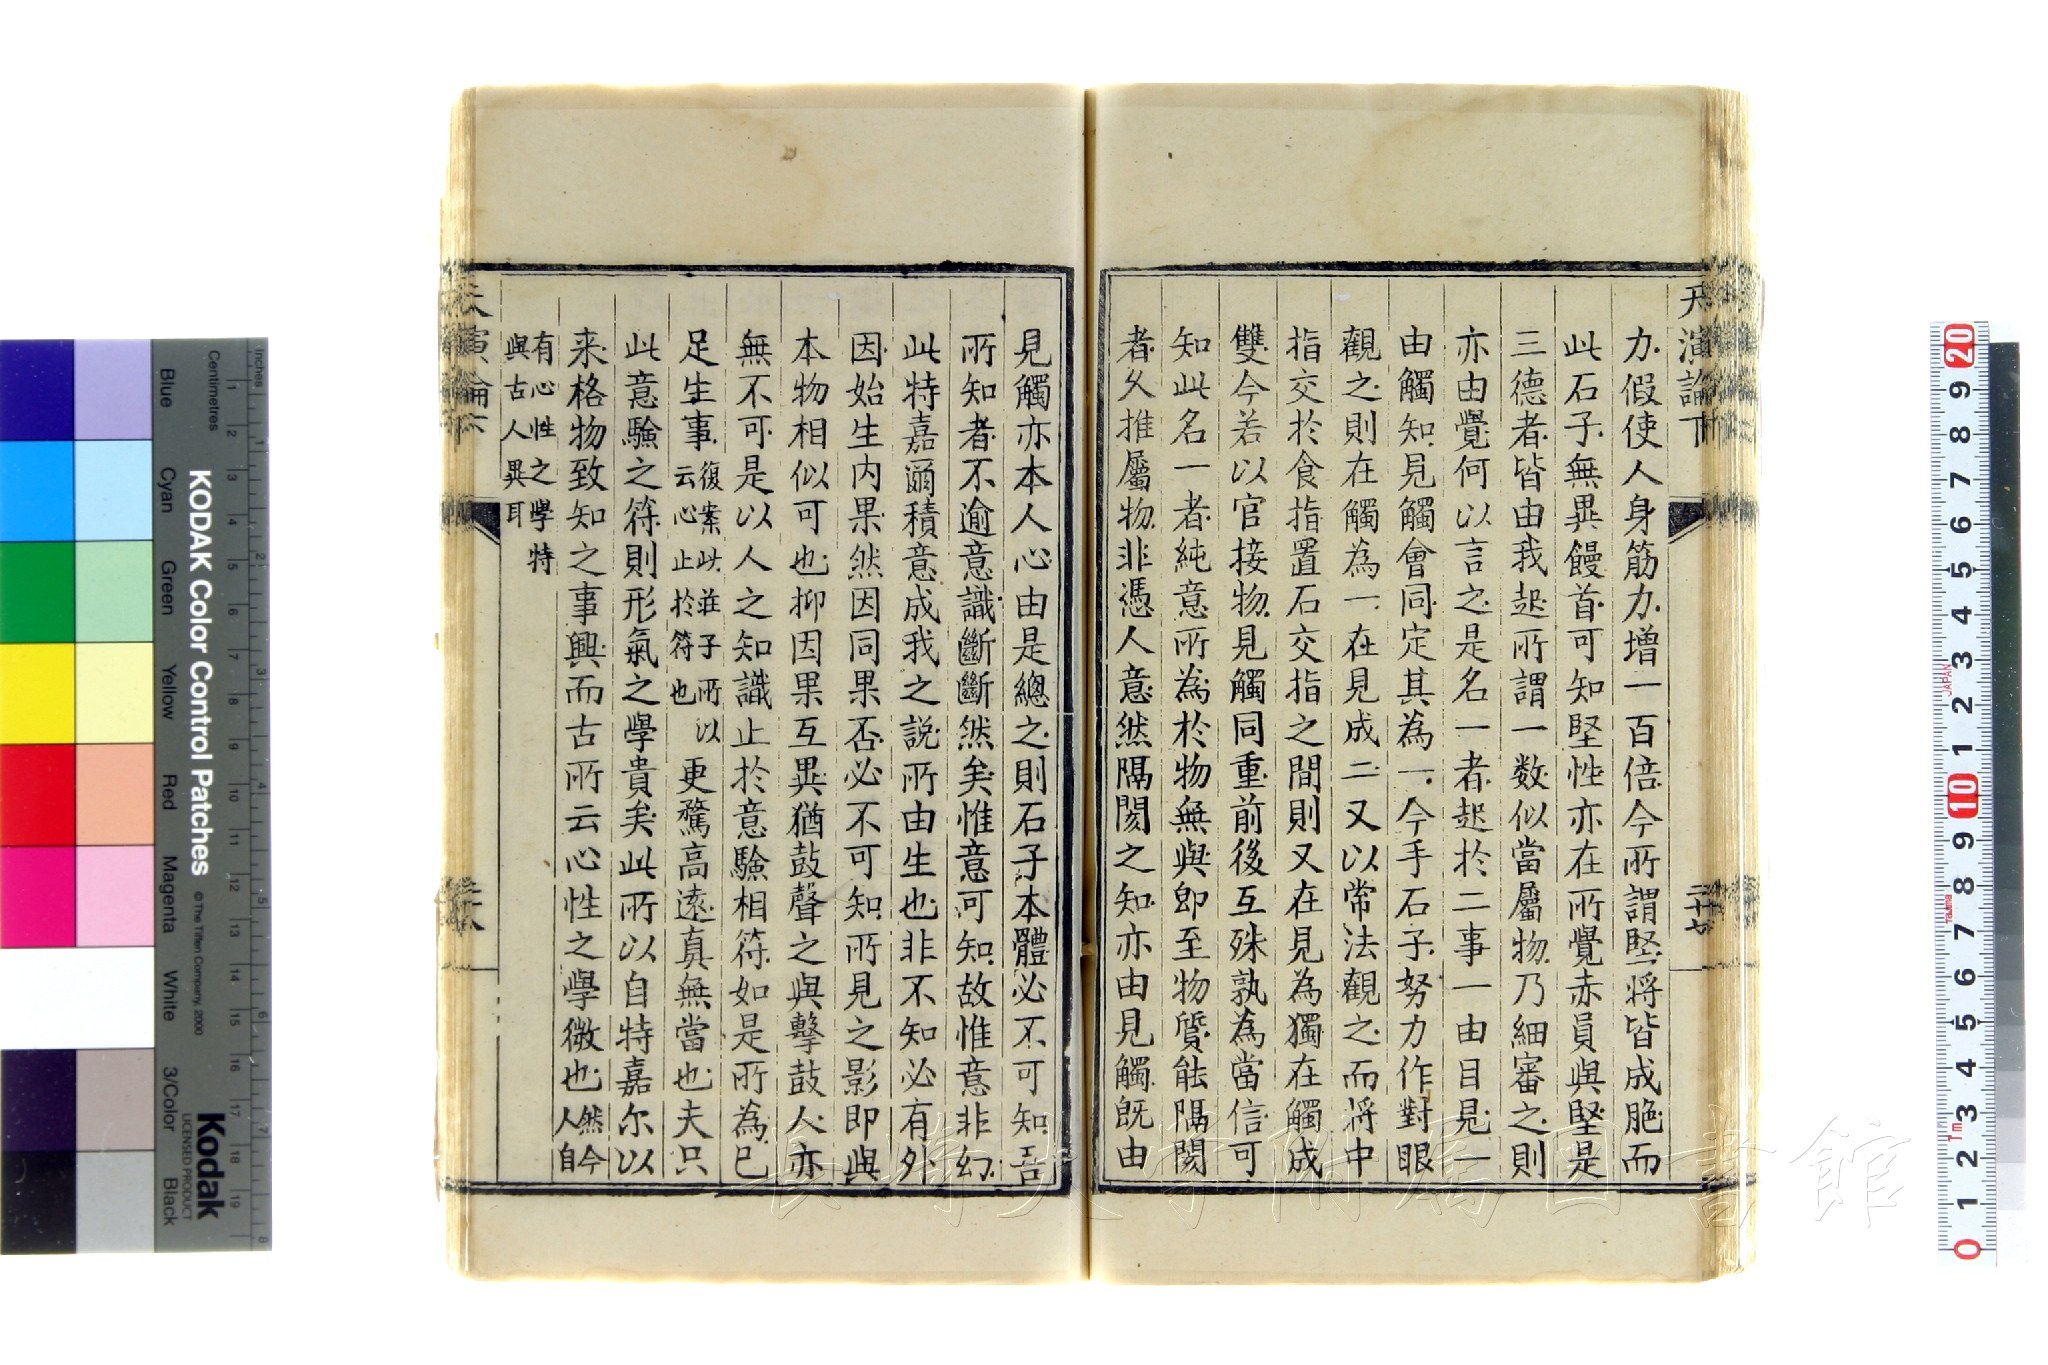 天演論下
二十七
力假使人身筋力增一百倍今所謂堅將皆成脆而
此石子無異饅首可知堅性亦在所覺赤員與堅是
三德者皆由我起所謂一數似當屬物乃細審之則
亦由覺何以言之是名一者起於二事一由目見一
由觸知見觸會同定其為一今手石子努力作對眼
觀之則在觸為一在見成二又以常法觀之而將中
指交於食指置石交指之間則又在見為獨在觸成
雙今若以官接物見觸同重前後互殊孰為當信可
知此名一者純意所為於物無與即至物質能隔閡
者久推屬物非憑人意然隔閡之知亦由見觸既由
見觸亦本人心由是總之則石子本體必不可知吾
所知者不逾意識斷斷然矣惟意可知故惟意非幻
此特嘉爾積意成我之說所由生也非不知必有外
因始生內果然因同果否必不可知所見之影即與
本物相似可也抑因果互異猶鼓聲之與擊鼓人亦
無不可是以人之知識止於意驗相符如是所為已
足生事復案此莊子所以云心止於符也更騖高遠真無當也夫只
此意驗之符則形氣之學貴矣此所以自特嘉尔以
来格物致知之事興而古所云心性之學微也然今人自
有心性之學特與古人異耳
天演論下
二十八
長崎大学附属図書館
KODAK Color Control Patches
© The Tiffen Company, 2000
Kodak
LICENSED PRODUCT
Inches
Centimetres
Blue
Cyan
Green
Yellow
Red
Magenta
White
3/Color
Black
1 2 3 4 5 6 7 8 9 10 11 12 13 14 15 16 17 18 19
1 2 3 4 5 6 7 8
0 1 2 3 4 5 6 7 8 9 10 1 2 3 4 5 6 7 8 9 20
JAPAN
Tajima